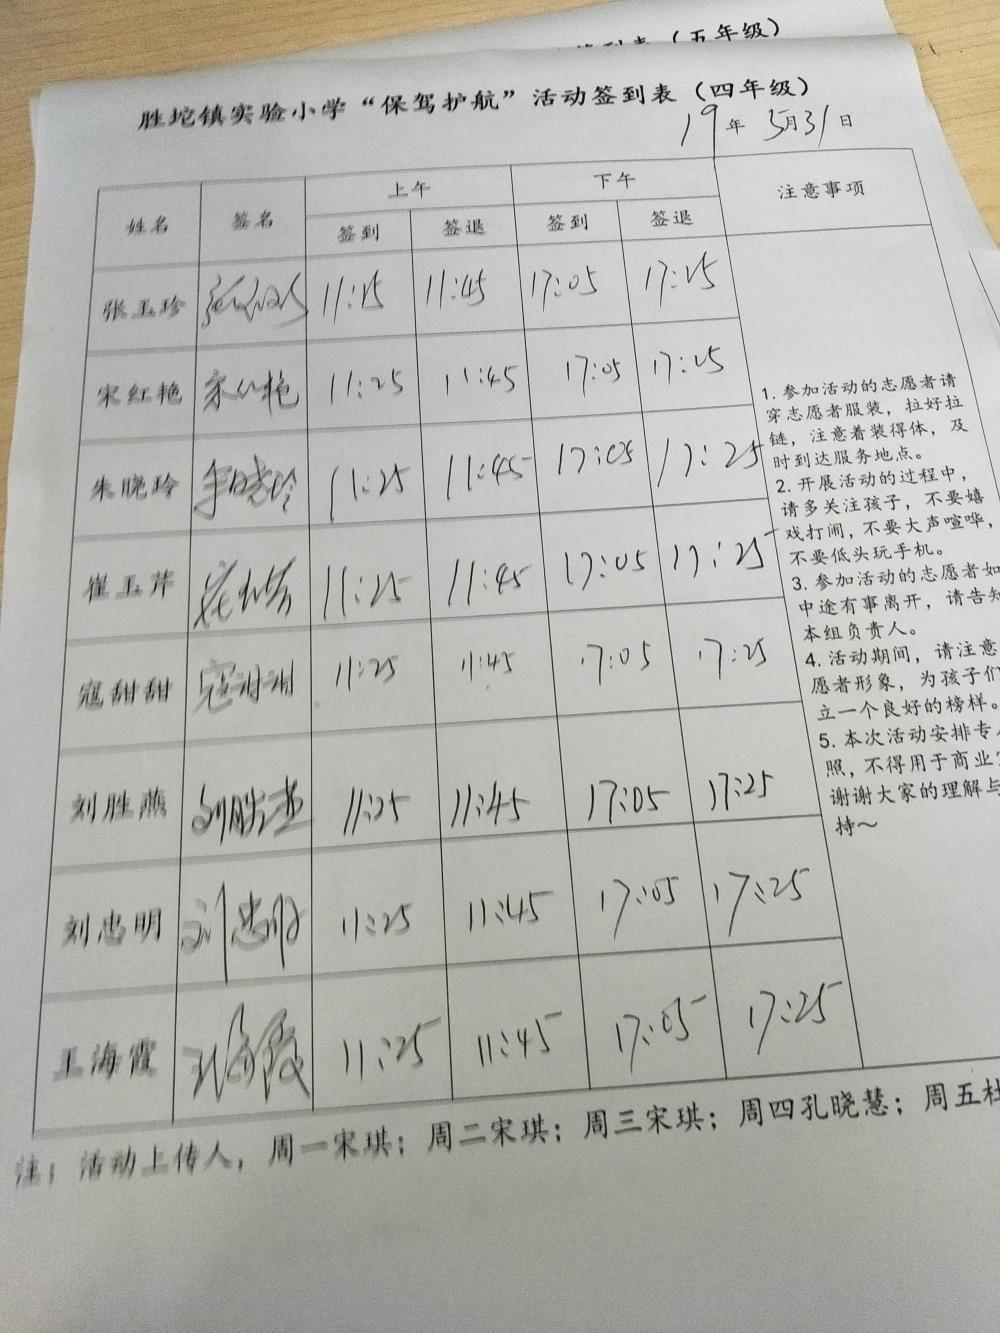 级到表（五年级）
胜坨镇实验小学“保驾护航”活动签到表（四年级）
19年 5月31日
姓名 签名 上午 下午 注意事项
签到 签退 签到 签退
张玉珍 11:15 11:45 17:05 17:25
宋红艳 宋红艳 11:25 11:45 17:05 17:25
朱晓玲 朱晓玲 11:25 11:45 17:05 17:25
崔玉芹 11:25 11:45 17:05 17:25
寇甜甜 寇甜甜 11:25 11:45 17:05 17:25
刘胜燕 刘胜燕 11:25 11:45 17:05 17:25
刘忠明 刘忠明 11:25 11:45 17:05 17:25
王海霞 王海霞 11:25 11:45 17:05 17:25
1. 参加活动的志愿者请
穿志愿者服装，拉好拉
链，注意着装得体，及
时到达服务地点。
2. 开展活动的过程中，
请多关注孩子，不要嬉
戏打闹，不要大声喧哗，
不要低头玩手机。
3. 参加活动的志愿者如
中途有事离开，请告知
本组负责人。
4. 活动期间，请注意
愿者形象，为孩子们
立一个良好的榜样。
5. 本次活动安排专
照，不得用于商业
谢谢大家的理解与
持～
注：活动上传人，周一宋琪；周二宋琪；周三宋琪；周四孔晓慧；周五杜